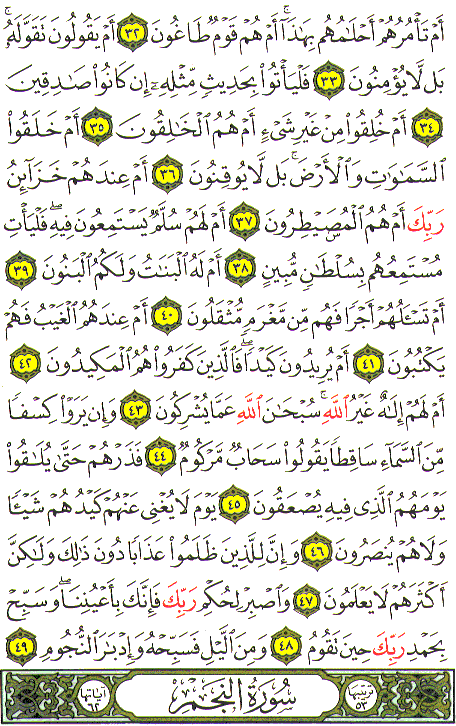 أَمْ تَأْمُرُهُمْ أَحْلَـٰمُهُم بِهَـٰذَآ ۚ أَمْ هُمْ قَوْمٌ طَاغُونَ ٣٢ أَمْ يَقُولُونَ تَقَوَّلَهُۥ ۚ
بَل لَّا يُؤْمِنُونَ ٣٣ فَلْيَأْتُوا۟ بِحَدِيثٍ مِّثْلِهِۦٓ إِن كَانُوا۟ صَـٰدِقِينَ
٣٤ أَمْ خُلِقُوا۟ مِنْ غَيْرِ شَىْءٍ أَمْ هُمُ الْخَـٰلِقُونَ ٣٥ أَمْ خَلَقُوا۟
السَّمَـٰوَٰتِ وَالْأَرْضَ ۚ بَل لَّا يُوقِنُونَ ٣٦ أَمْ عِندَهُمْ خَزَآئِنُ
رَبِّكَ أَمْ هُمُ الْمُصَۣيْطِرُونَ ٣٧ أَمْ لَهُمْ سُلَّمٌ يَسْتَمِعُونَ فِيهِ ۖ فَلْيَأْتِ
مُسْتَمِعُهُم بِسُلْطَـٰنٍ مُّبِينٍ ٣٨ أَمْ لَهُ الْبَنَـٰتُ وَلَكُمُ الْبَنُونَ ٣٩
أَمْ تَسْـَٔلُهُمْ أَجْرًا فَهُم مِّن مَّغْرَمٍ مُّثْقَلُونَ ٤٠ أَمْ عِندَهُمُ الْغَيْبُ فَهُمْ
يَكْتُبُونَ ٤١ أَمْ يُرِيدُونَ كَيْدًا ۖ فَالَّذِينَ كَفَرُوا۟ هُمُ الْمَكِيدُونَ ٤٢
أَمْ لَهُمْ إِلَـٰهٌ غَيْرُ اللَّهِ ۚ سُبْحَـٰنَ اللَّهِ عَمَّا يُشْرِكُونَ ٤٣ وَإِن يَرَوْا۟ كِسْفًا
مِّنَ السَّمَآءِ سَاقِطًا يَقُولُوا۟ سَحَابٌ مَّرْكُومٌ ٤٤ فَذَرْهُمْ حَتَّىٰ يُلَـٰقُوا۟
يَوْمَهُمُ الَّذِى فِيهِ يُصْعَقُونَ ٤٥ يَوْمَ لَا يُغْنِى عَنْهُمْ كَيْدُهُمْ شَيْـًٔا
وَلَا هُمْ يُنصَرُونَ ٤٦ وَإِنَّ لِلَّذِينَ ظَلَمُوا۟ عَذَابًا دُونَ ذَٰلِكَ وَلَـٰكِنَّ
أَكْثَرَهُمْ لَا يَعْلَمُونَ ٤٧ وَاصْبِرْ لِحُكْمِ رَبِّكَ فَإِنَّكَ بِأَعْيُنِنَا ۖ وَسَبِّحْ
بِحَمْدِ رَبِّكَ حِينَ تَقُومُ ٤٨ وَمِنَ الَّيْلِ فَسَبِّحْهُ وَإِدْبَـٰرَ النُّجُومِ ٤٩
ترتيبها ٥٣ سُورَةُ النَّجْمِ آياتها ٦٢